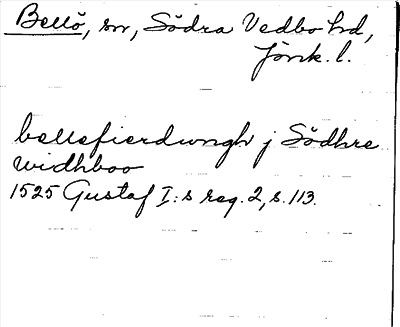 Bellö, sn, Södra Vedbo hd,
Jönk. l.
bellefierdwngh j Södhre
widhboo
1525 Gustaf I:s reg. 2, s. 113.